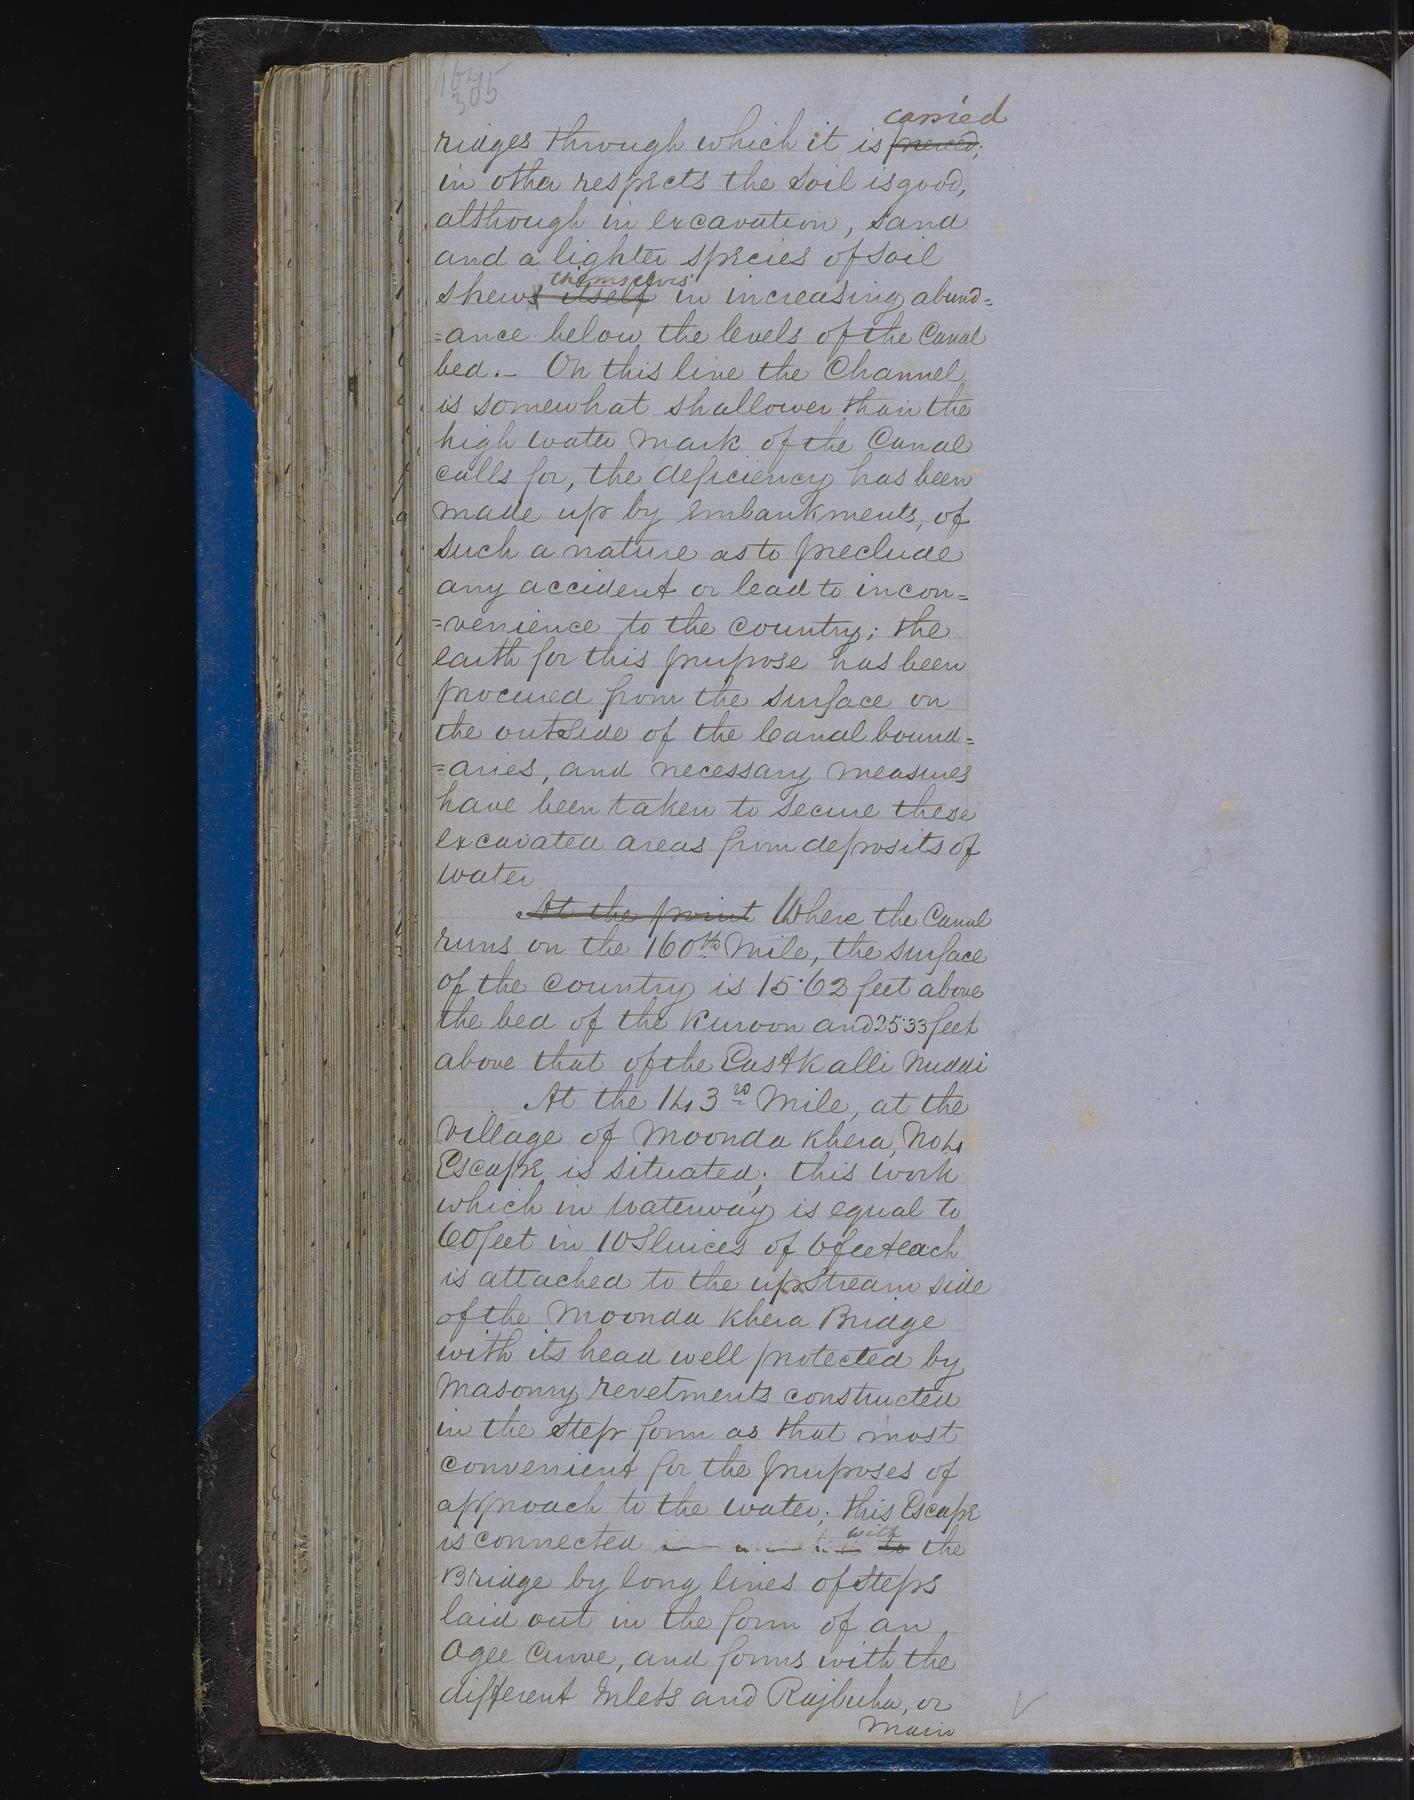 1645
305
carried
ridges through which it is pierced;
in other respects the soil is good,
although in excavation, sand
and a lighter species of soil
themselves
shews itself in increasing abund=
=ance below the levels of the Canal
bed. - On this line the Channel
is somewhat shallower than the
high water mark of the Canal
calls for, the deficiency has been
made up by embankments, of
such a nature as to preclude
any accident or lead to incon=
=venience to the country; the
earth for this purpose has been
procured from the surface on
the outside of the Canal bound=
=aries, and necessary measures
have been taken to secure these
excavated areas from deposits of
water
At the point Where the Canal
runs on the 160th Mile, the surface
of the country is 15.62 feet above
the bed of the Kuroon and 25.33 feet
above that of the East Kalli Nuddi
At the 143rd Mile, at the
Village of Moonda Khera, No 4
Escape is situated; this work
which in Waterway is equal to
60 feet in 10 Sluices of 6 feet each
is attached to the upstream side
of the Moonda Khera Bridge
with its head well protected by
Masonry revetments constructed
in the step form as that most
convenient for the purposes of
approach to the water; this Escape
with
is connected to the
Bridge by long lines of steps
laid out in the form of an
Ogee Curve, and forms with the
different Inlets and Rajbuha, or
Main